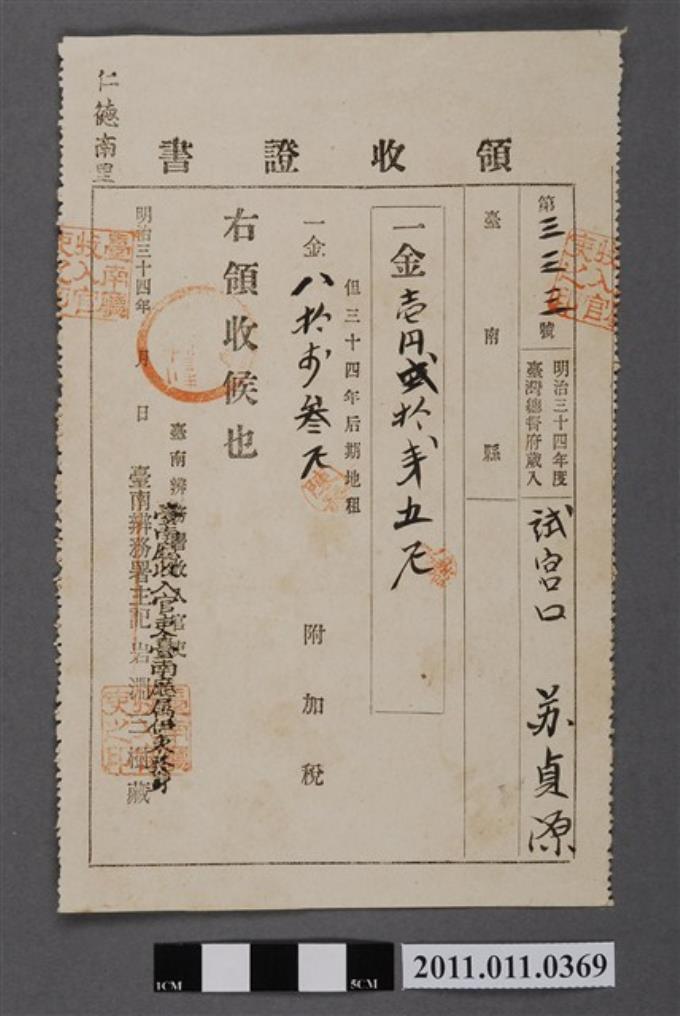 領收證書
仁德南里
第三三三號
明治三十四年度
臺灣總督府歲入
試宮口 苏貞源
臺南縣
一金壱円貳拾五尺
但三十四年后期地租
一金八拾叁尺
附加稅
右領收候也
明治三十四年 月 日
臺南辨務署收入官吏
臺南辨務署主記 岩淵三樹藏
臺南廳收入官吏臺南廳屬伊東
臺南廳收入官吏之印
1CM
5CM
2011.011.0369